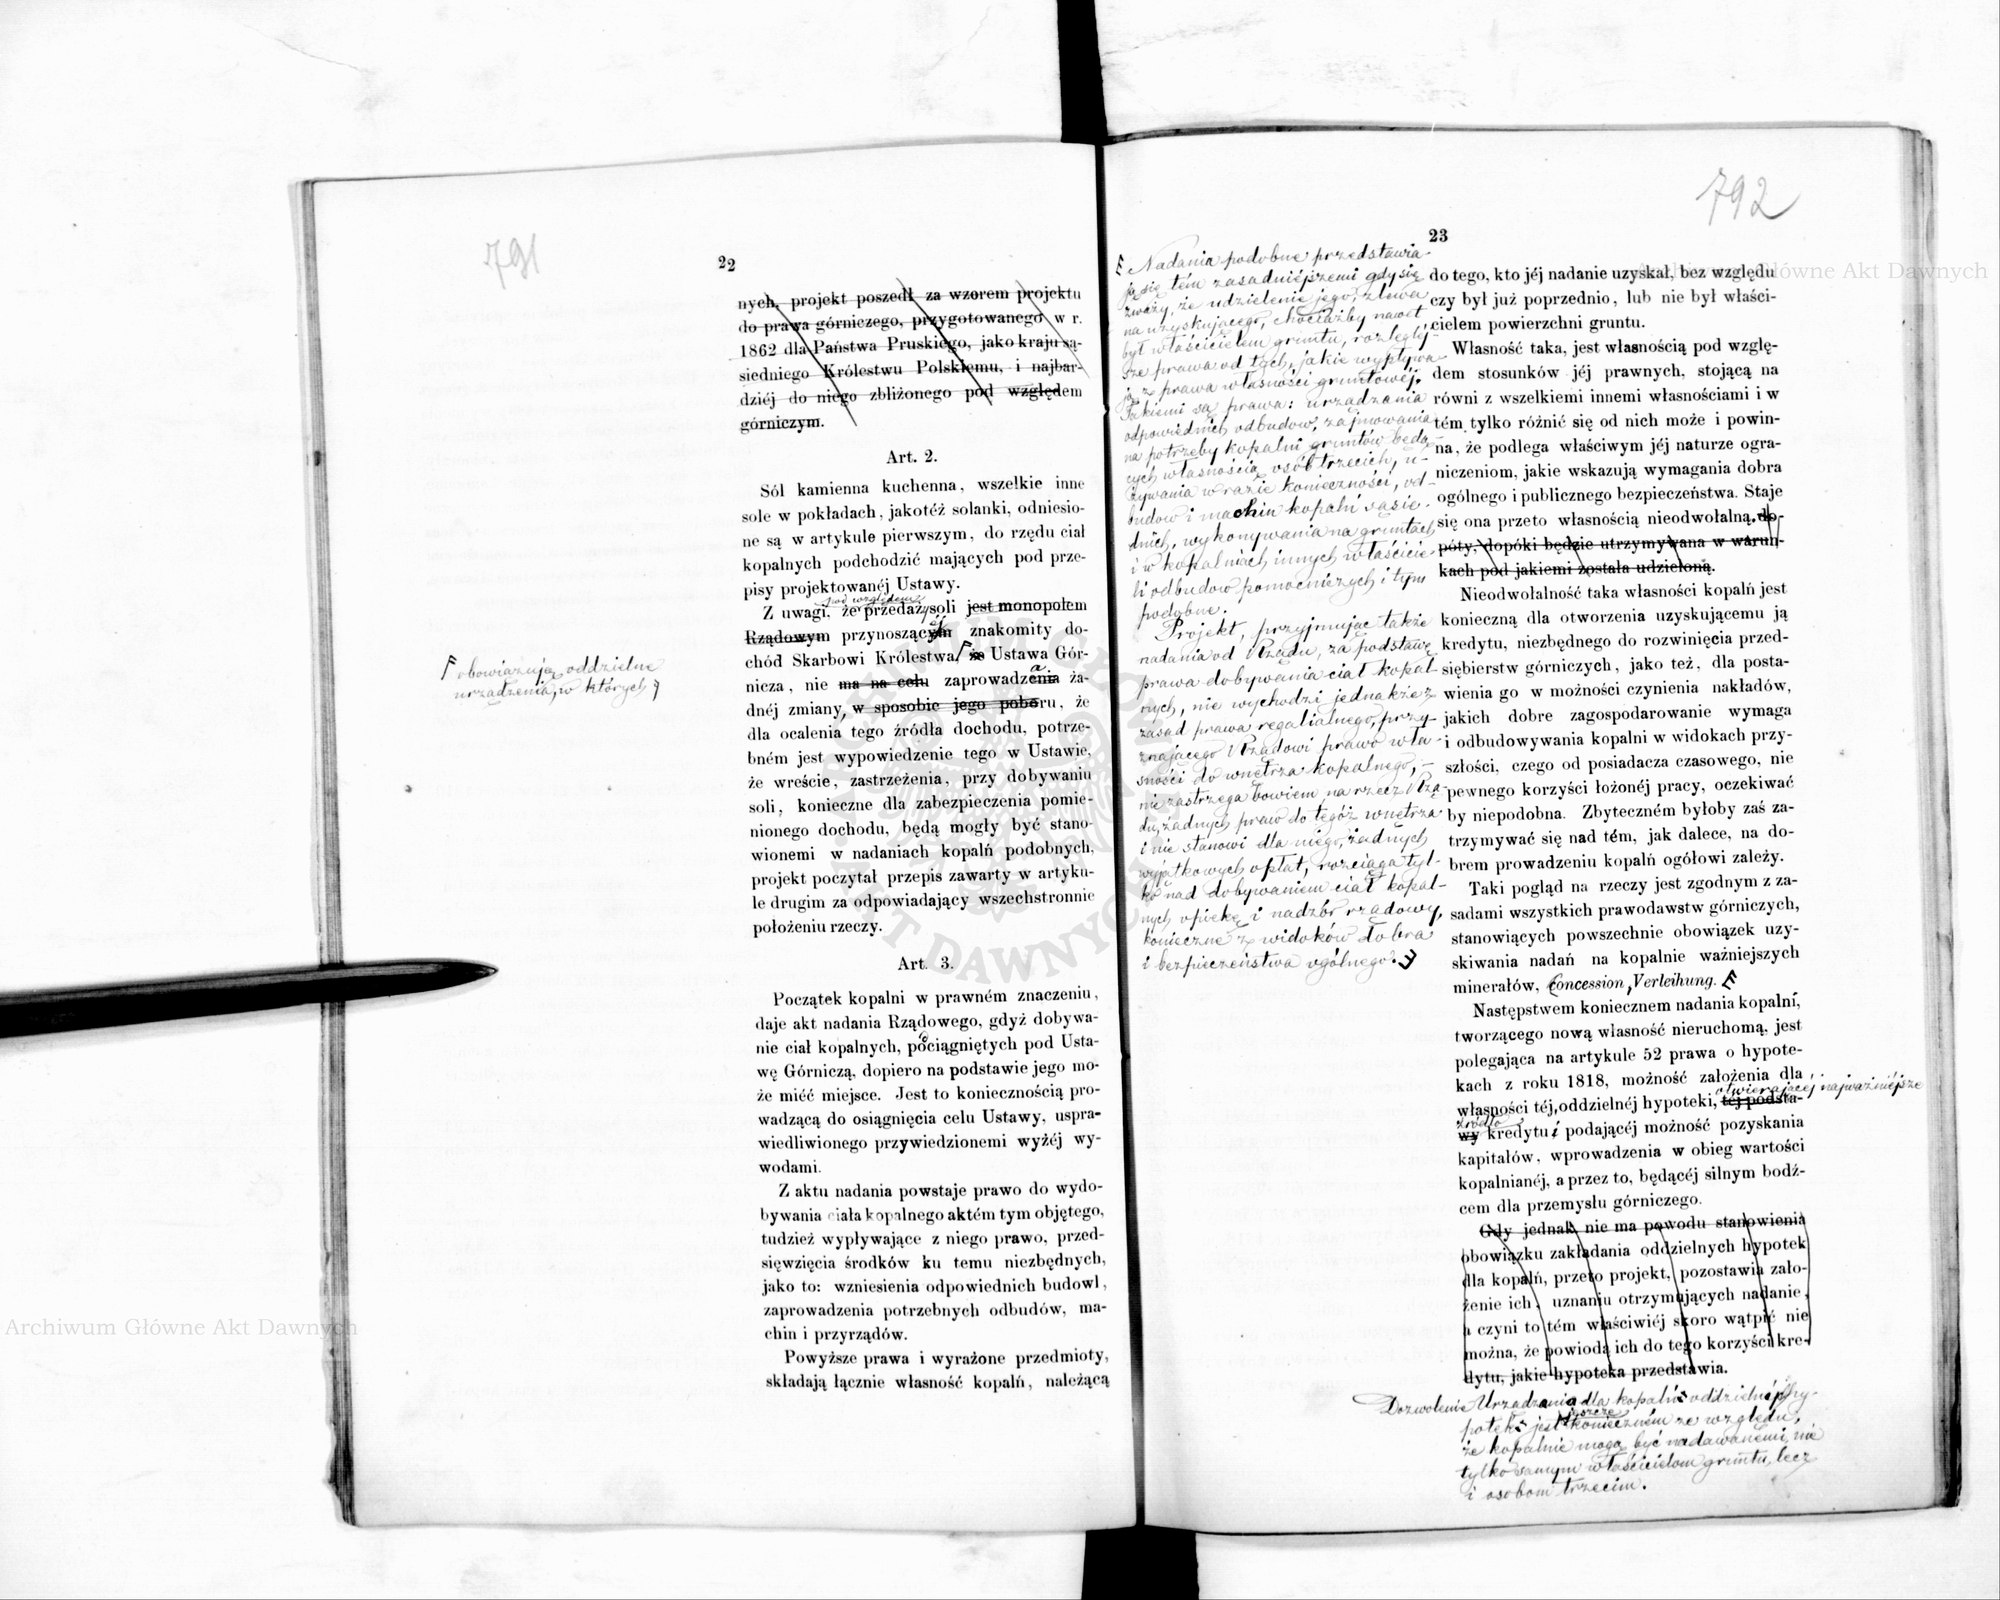 791
22
nych, projekt poszedł za wzorem projektu
do prawa górniczego, przygotowanego w r.
1862 dla Państwa Pruskiego, jako kraju są-
siedniego Królestwu Polskiemu, i najbar-
dziéj do niego zbliżonego pod względem
górniczym.
Art. 2.
Sól kamienna kuchenna, wszelkie inne
sole w pokładach, jakotéż solanki, odniesio-
ne są w artykule pierwszym, do rzędu ciał
kopalnych podchodzić mających pod prze-
pisy projektowanéj Ustawy.
pod względem
Z uwagi, że przedaży soli jest monopolem
Rządowym przynoszącym znakomity do-
chód Skarbowi Królestwa, że Ustawa Gór-
nicza, nie ma na celu zaprowadzenia ża-
dnéj zmiany, w sposobie jego poboru, że
dla ocalenia tego źródła dochodu, potrze-
bném jest wypowiedzenie tego w Ustawie,
że wreście, zastrzeżenia, przy dobywaniu
soli, konieczne dla zabezpieczenia pomie-
nionego dochodu, będą mogły być stano-
wionemi w nadaniach kopalń podobnych,
projekt poczytał przepis zawarty w artyku-
le drugim za odpowiadający wszechstronnie
położeniu rzeczy.
obowiązują oddzielne
urządzenia, w których
Art. 3.
Początek kopalni w prawném znaczeniu,
daje akt nadania Rządowego, gdyż dobywa-
nie ciał kopalnych, pociągniętych pod Usta-
wę Górniczą, dopiero na podstawie jego mo-
że mićć miejsce. Jest to koniecznością pro-
wadzącą do osiągnięcia celu Ustawy, uspra-
wiedliwionego przywiedzionemi wyżéj wy-
wodami.
Z aktu nadania powstaje prawo do wydo-
bywania ciała kopalnego aktém tym objętego,
tudzież wypływające z niego prawo, przed-
sięwzięcia środków ku temu niezbędnych,
jako to: wzniesienia odpowiednich budowl,
zaprowadzenia potrzebnych odbudów, ma-
chin i przyrządów.
Powyższe prawa i wyrażone przedmioty,
składają łącznie własność kopalń, należącą
792
23
Nadania podobne przedstawia-
ją się tém zasadniéjszemi gdy się
zważy, że udzielenie jego, zlewa
na uzyskującego, chociażby nawet
był właścicielem gruntu, rozległéj-
sze prawa od tych, jakie wypływa-
ją z prawa własności gruntowéj.
Takiemi są prawa: urządzania
odpowiednich odbudow, zajmowania
na potrzeby kopalni gruntów będą-
cych własnością osób trzecich, u-
żywania w razie konieczności, od-
budow i machin kopalń sąsie-
dnich, wykonywania na gruntach
i w kopalniach innych właścicie-
li odbudow pomocniczych i tym
podobne.
Projekt, przyjmując także
nadania od Rządu, za podstawę
prawa dobywania ciał kopal-
nych, nie wychodzi jednakże z
zasad prawa regalialnego, przy-
znającego Rządowi prawo wła-
sności do wnętrza kopalnego,
nie zastrzega bowiem na rzecz Rzą-
du, żadnych praw do tegóż wnętrza
i nie stanowi dla niego, żadnych
wyjątkowych opłat, rozciąga tyl-
ko nad dobywaniem ciał kopal-
nych opiekę i nadzór rządowy,
konieczne z widoków dobra
i bezpieczeństwa ogólnego.
do tego, kto jéj nadanie uzyskał, bez względu
czy był już poprzednio, lub nie był właści-
cielem powierzchni gruntu.
Własność taka, jest własnością pod wzglę-
dem stosunków jéj prawnych, stojącą na
równi z wszelkiemi innemi własnościami i w
tém tylko różnić się od nich może i powin-
na, że podlega właściwym jéj naturze ogra-
niczeniom, jakie wskazują wymagania dobra
ogólnego i publicznego bezpieczeństwa. Staje
się ona przeto własnością nieodwołalną, do-
póty, dopóki będzie utrzymywana w warun-
kach pod jakiemi została udzieloną.
Nieodwołalność taka własności kopalń jest
konieczną dla otworzenia uzyskującemu ją
kredytu, niezbędnego do rozwinięcia przed-
siębierstw górniczych, jako też, dla posta-
wienia go w możności czynienia nakładów,
jakich dobre zagospodarowanie wymaga
i odbudowywania kopalni w widokach przy-
szłości, czego od posiadacza czasowego, nie
pewnego korzyści łożonéj pracy, oczekiwać
by niepodobna. Zbyteczném byłoby zaś za-
trzymywać się nad tém, jak dalece, na do-
brem prowadzeniu kopalń ogółowi zależy.
Taki pogląd na rzeczy jest zgodnym z za-
sadami wszystkich prawodawstw górniczych,
stanowiących powszechnie obowiązek uzy-
skiwania nadań na kopalnie ważniejszych
minerałów, Concession, Verleihung.
Następstwem koniecznem nadania kopalni,
tworzącego nową własność nieruchomą, jest
polegająca na artykule 52 prawa o hypote-
kach z roku 1818, możność założenia dla
otwierającéj najważniéjsze
własności téj, oddzielnéj hypoteki, téj podsta-
źródło
wy kredytu i podającéj możność pozyskania
kapitałów, wprowadzenia w obieg wartości
kopalnianéj, a przez to, będącéj silnym bodź-
cem dla przemysłu górniczego.
Gdy jednak nie ma powodu stanowienia
obowiązku zakładania oddzielnych hypotek
dla kopalń, przeto projekt, pozostawia zało-
żenie ich, uznaniu otrzymujących nadanie,
a czyni to tém właściwiéj skoro wątpić nie
można, że powiodą ich do tego korzyści kre-
dytu, jakie hypoteka przedstawia.
Dozwolenie Urządzania dla kopalń oddzielnéj hy-
poteki jest jeszcze konieczném ze względu,
że kopalnie mogą być nadawanemi nie
tylko samym właścicielom gruntu, lecz
i osobom trzecim.
Archiwum Główne Akt Dawnych
Archiwum Główne Akt Dawnych